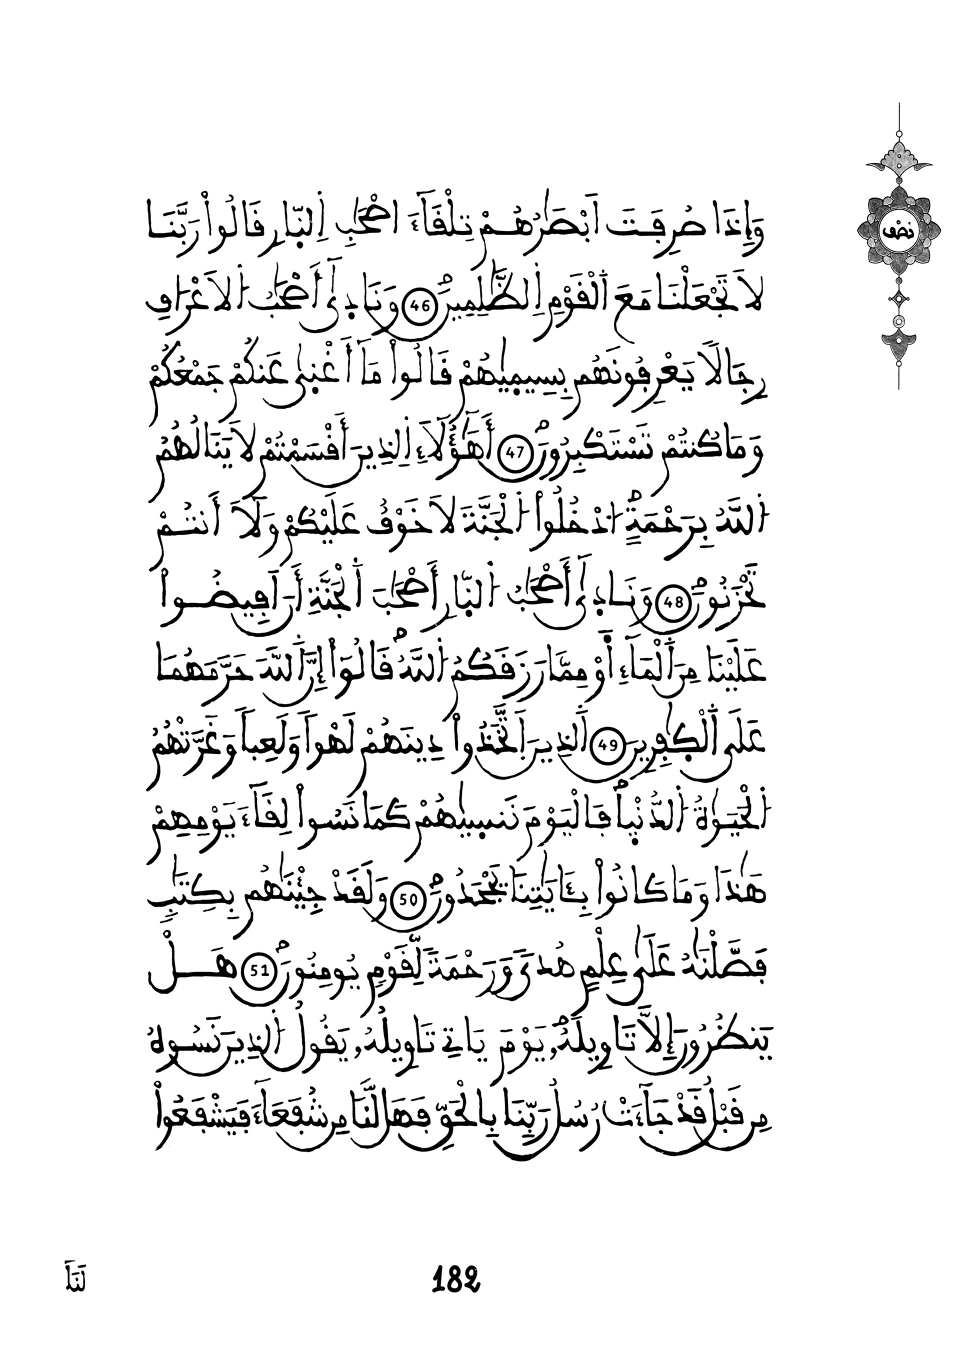 نصف
وَإِذَا صُرِفَتَ اَبْصَٰرُهُمْ تِلْقَآءَ اَصْحَٰبِ اِ۬لنّ۪ارِ قَالُواْ رَبَّنَا
لَا تَجْعَلْنَا مَعَ اَ۬لْقَوْمِ اِ۬لظَّٰلِمِينَۖ 46 وَنَاد۪يٰٓ أَصْحَٰبُ اُ۬لَاعْرَافِ
رِجَالاٗ يَعْرِفُونَهُم بِسِيم۪يٰهُمْ قَالُواْ مَآ أَغْن۪يٰ عَنكُمْ جَمْعُكُمْ
وَمَا كُنتُمْ تَسْتَكْبِرُونَۖ 47 أَهَٰٓؤُلَآءِ اِ۬لذِينَ أَقْسَمْتُمْ لَا يَنَالُهُمُ
اُ۬للَّهُ بِرَحْمَةٍۖ اُ۟دْخُلُواْ اُ۬لْجَنَّةَ لَا خَوْفٌ عَلَيْكُمْ وَلَآ أَنتُمْ
تَحْزَنُونَۖ 48 وَنَاد۪يٰٓ أَصْحَٰبُ اُ۬لنّ۪ارِ أَصْحَٰبَ اَ۬لْجَنَّةِ أَنَ اَفِيضُواْ
عَلَيْنَا مِنَ اَ۬لْمَآءِ اَ۬وْ مِمَّا رَزَقَكُمُ اُ۬للَّهُۖ قَالُوٓاْ إِنَّ اَ۬للَّهَ حَرَّمَهُمَا
عَلَى اَ۬لْكٰ۪فِرِينَ 49 اَ۬لذِينَ اَ۪تَّخَذُواْ دِينَهُمْ لَهْواٗ وَلَعِباٗ وَغَرَّتْهُمُ
اُ۬لْحَيَوٰةُ اُ۬لدُّنْي۪اۖ فَالْيَوْمَ نَنس۪يٰهُمْ كَمَا نَسُواْ لِقَآءَ يَوْمِهِمْ
هَٰذَا وَمَا كَانُواْ بِـَٔايَٰتِنَا يَجْحَدُونَۖ 50 وَلَقَدْ جِئْنَٰهُم بِكِتَٰبٖ
فَصَّلْنَٰهُ عَلَىٰ عِلْمٍ هُديٗ وَرَحْمَةٗ لِّقَوْمٖ يُومِنُونَۖ 51 هَلْ
يَنظُرُونَ إِلَّا تَاوِيلَهُۥۖ يَوْمَ يَاتِے تَاوِيلُهُۥ يَقُولُ اُ۬لذِينَ نَسُوهُ
مِن قَبْلُ قَدْ جَآءَتْ رُسُلُ رَبِّنَا بِالْحَقِّ فَهَل لَّنَا مِن شُفَعَآءَ فَيَشْفَعُواْ
لَنَآ
182